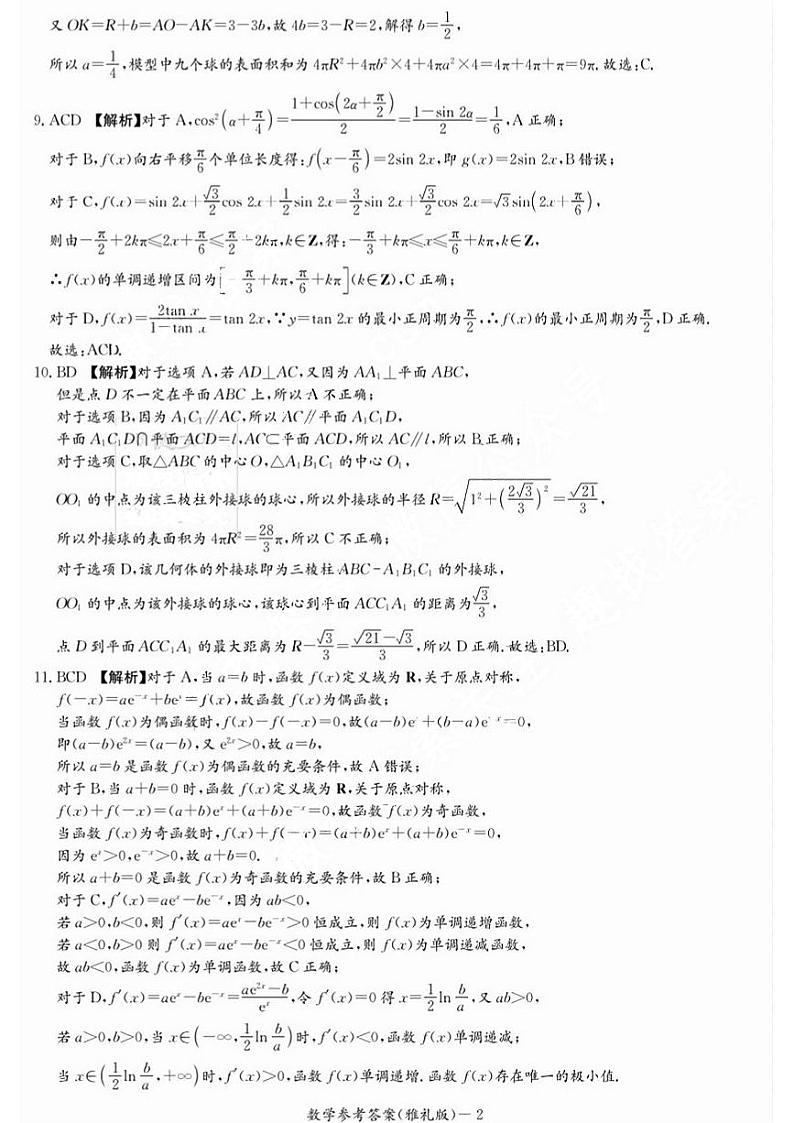 又 OK=R+b=AO-AK=3-3b,故 4b=3-R=2,解得 b=1/2,
所以 a=1/4,模型中九个球的表面积和为 4πR²+4πb²×4+4πa²×4=4π+4π+π=9π.故选:C.
9. ACD 【解析】对于 A,cos²(α+π/4)=(1+cos(2α+π/2))/2=(1-sin 2α)/2=1/6,A 正确;
对于 B,f(x)向右平移π/6个单位长度得:f(x-π/6)=2sin 2x,即 g(x)=2sin 2x,B 错误;
对于 C,f(x)=sin 2x+√3/2 cos 2x+1/2 sin 2x=3/2 sin 2x+√3/2 cos 2x=√3 sin(2x+π/6),
则由-π/2+2kπ≤2x+π/6≤π/2+2kπ,k∈Z,得:-π/3+kπ≤x≤π/6+kπ,k∈Z,
∴f(x)的单调递增区间为[-π/3+kπ,π/6+kπ](k∈Z),C 正确;
对于 D,f(x)=2tan x/(1-tan x)=tan 2x,∵y=tan 2x 的最小正周期为π/2,∴f(x)的最小正周期为π/2,D 正确.
故选:ACD.
10. BD 【解析】对于选项 A,若 AD⊥AC,又因为 AA₁⊥平面 ABC,
但是点 D 不一定在平面 ABC 上,所以 A 不正确;
对于选项 B,因为 A₁C₁∥AC,所以 AC∥平面 A₁C₁D,
平面 A₁C₁D∩平面 ACD=l,AC⊂平面 ACD,所以 AC∥l,所以 B 正确;
对于选项 C,取△ABC 的中心 O,△A₁B₁C₁ 的中心 O₁,
OO₁ 的中点为该三棱柱外接球的球心,所以外接球的半径 R=√(1²+(2√3/3)²)=√21/3,
所以外接球的表面积为 4πR²=28/3 π,所以 C 不正确;
对于选项 D,该几何体的外接球即为三棱柱 ABC-A₁B₁C₁ 的外接球,
OO₁ 的中点为该外接球的球心,该球心到平面 ACC₁A₁ 的距离为√3/3,
点 D 到平面 ACC₁A₁ 的最大距离为 R-√3/3=(√21-√3)/3,所以 D 正确.故选:BD.
11. BCD 【解析】对于 A,当 a=b 时,函数 f(x)定义域为 R,关于原点对称,
f(-x)=ae⁻ˣ+beˣ=f(x),故函数 f(x)为偶函数;
当函数 f(x)为偶函数时,f(x)-f(-x)=0,故(a-b)eˣ+(b-a)e⁻ˣ=0,
即(a-b)e²ˣ=(a-b),又 e²ˣ>0,故 a=b,
所以 a=b 是函数 f(x)为偶函数的充要条件,故 A 错误;
对于 B,当 a+b=0 时,函数 f(x)定义域为 R,关于原点对称,
f(x)+f(-x)=(a+b)eˣ+(a+b)e⁻ˣ=0,故函数 f(x)为奇函数,
当函数 f(x)为奇函数时,f(x)+f(-x)=(a+b)eˣ+(a+b)e⁻ˣ=0,
因为 eˣ>0,e⁻ˣ>0,故 a+b=0.
所以 a+b=0 是函数 f(x)为奇函数的充要条件,故 B 正确;
对于 C,f′(x)=aeˣ-be⁻ˣ,因为 ab<0,
若 a>0,b<0,则 f′(x)=aeˣ-be⁻ˣ>0 恒成立,则 f(x)为单调递增函数,
若 a<0,b>0 则 f′(x)=aeˣ-be⁻ˣ<0 恒成立,则 f(x)为单调递减函数,
故 ab<0,函数 f(x)为单调函数,故 C 正确;
对于 D,f′(x)=aeˣ-be⁻ˣ=(ae²ˣ-b)/eˣ,令 f′(x)=0 得 x=1/2 ln b/a,又 ab>0,
若 a>0,b>0,当 x∈(-∞,1/2 ln b/a)时,f′(x)<0,函数 f(x)单调递减;
当 x∈(1/2 ln b/a,+∞)时,f′(x)>0,函数 f(x)单调递增.函数 f(x)存在唯一的极小值.
数学参考答案(雅礼版)-2